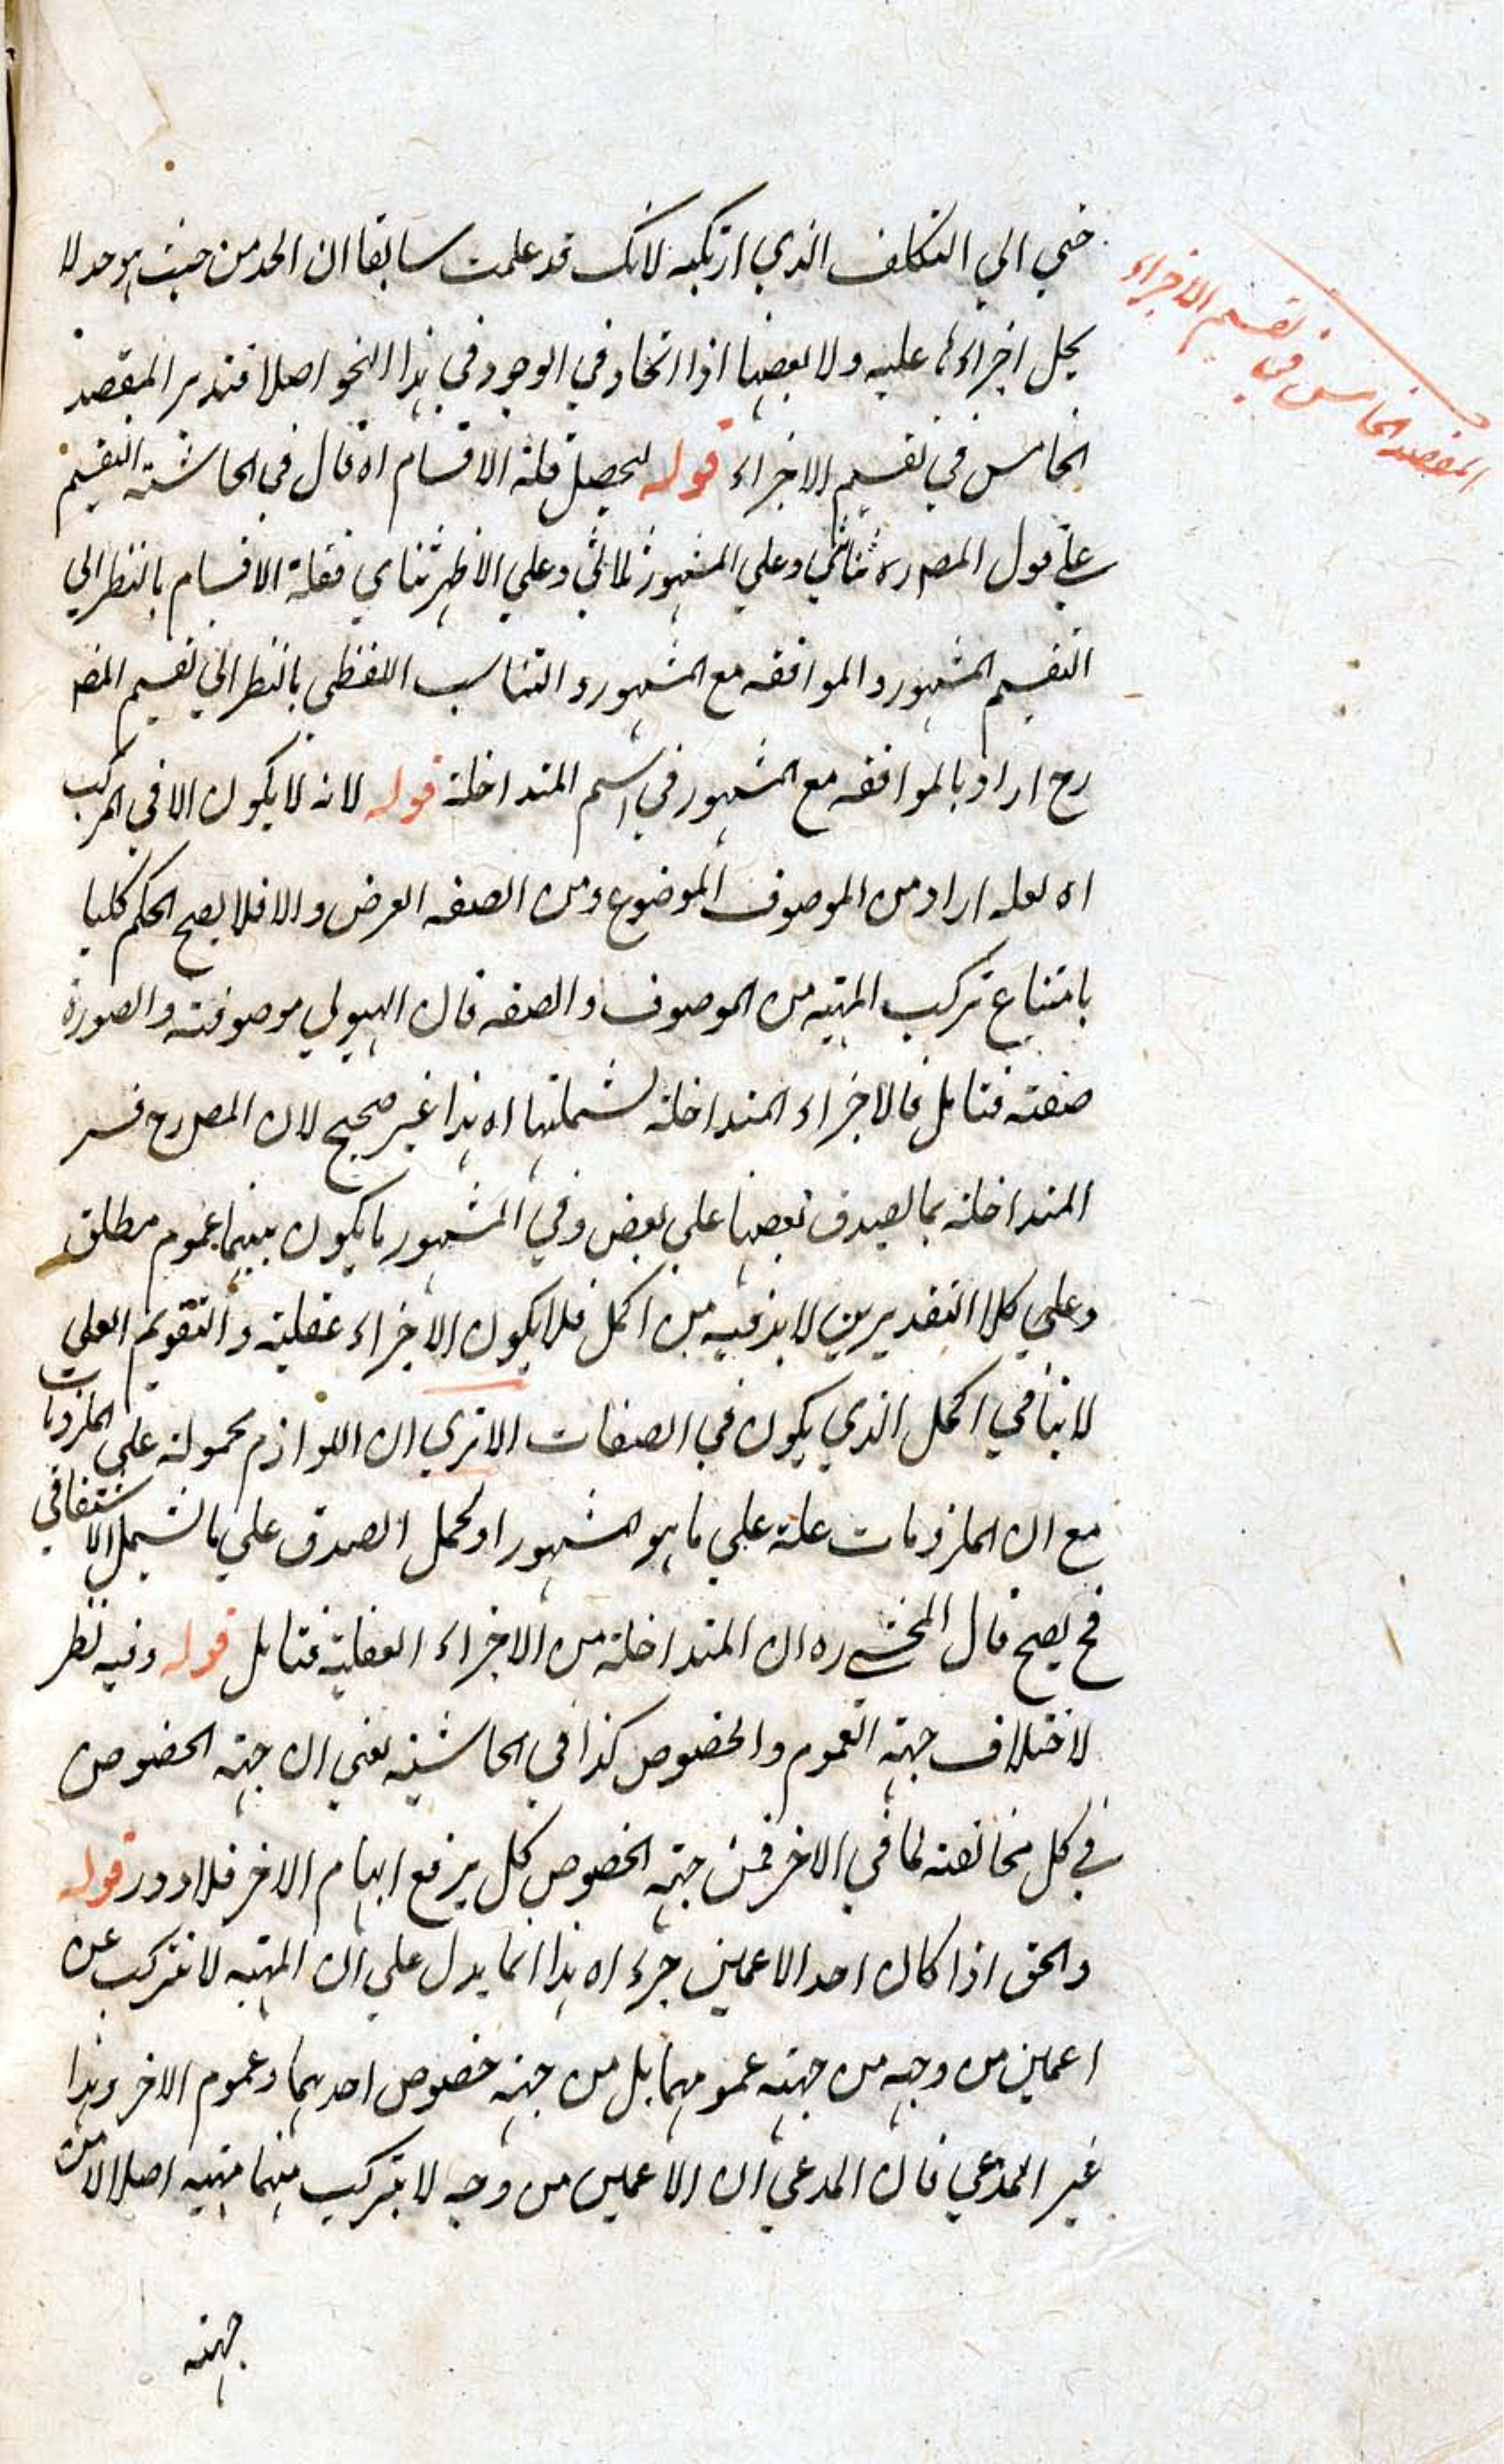 حتي الي التكلف الذي ارتكبه لانك قد علمت سابقا ان الحد من حيث هو حد لا
يحمل اجزاءه عليه ولا بعضها اذا اتحاد في الوجود في هذا النحو اصلا فتدبر المقصد
الخامس في تقسيم الاجزاء قوله ليحصل قلة الاقسام اه قال في الحاشية التقسيم
علي قول المصره ثنائي وعلي المشهور ثلاثي وعلي الاظهر ثنائي فقلة الاقسام بالنظر الي
التقسيم المشهور والموافقة مع المشهور والتناسب اللفظي بالنظر الي تقسيم المصه
رح اراد بالموافقة مع المشهور في اسم المتداخلة قوله لانه لا يكون الا في المركب
اه لعله اراد من الموصوف الموضوع ومن الصفة العرض والا فلا يصح الحكم كليا
بامتناع تركب المهية من الموصوف والصفة فان الهيولي موصوفة والصورة
صفة فتامل فالاجزاء المتداخلة تشملتها اه هذا غير صحيح لان المصه رح فسر
المتداخلة بما يصدق بعضها علي بعض وفي المشهور ما يكون بينهما عموم مطلق
وعلي كلا التقديرين لا بد فيه من الحمل فلا يكون الاجزاء عقلية والتقويم العلي
لا ينافي الحمل الذي يكون في الصفات الا تري ان اللوازم محمولة علي الملزومات
مع ان الملزومات علة علي ما هو المشهور او يحمل الصدق علي ما يشمل الاشتقاقي
فح يصح قال المحشي ره ان المتداخلة من الاجزاء العقلية فتامل قوله وفيه نظر
لاختلاف جهة العموم والخصوص كذا في الحاشية يعني ان جهة الخصوص
في كل مخالفة لما في الاخر فمن جهة الخصوص كل يرفع ابهام الاخر فلا دور قوله
والحق اذا كان احد الاعمين جزء اه هذا انما يدل علي ان المهية لا تتركب عن
اعمين من وجه من جهة عمومهما بل من جهة خصوص احدهما وعموم الاخر وهذا
غير المدعي فان المدعي ان الاعمين من وجه لا يتركب منهما مهية اصلا لا من
جهة
المقصد الخامس في تقسيم الاجزاء